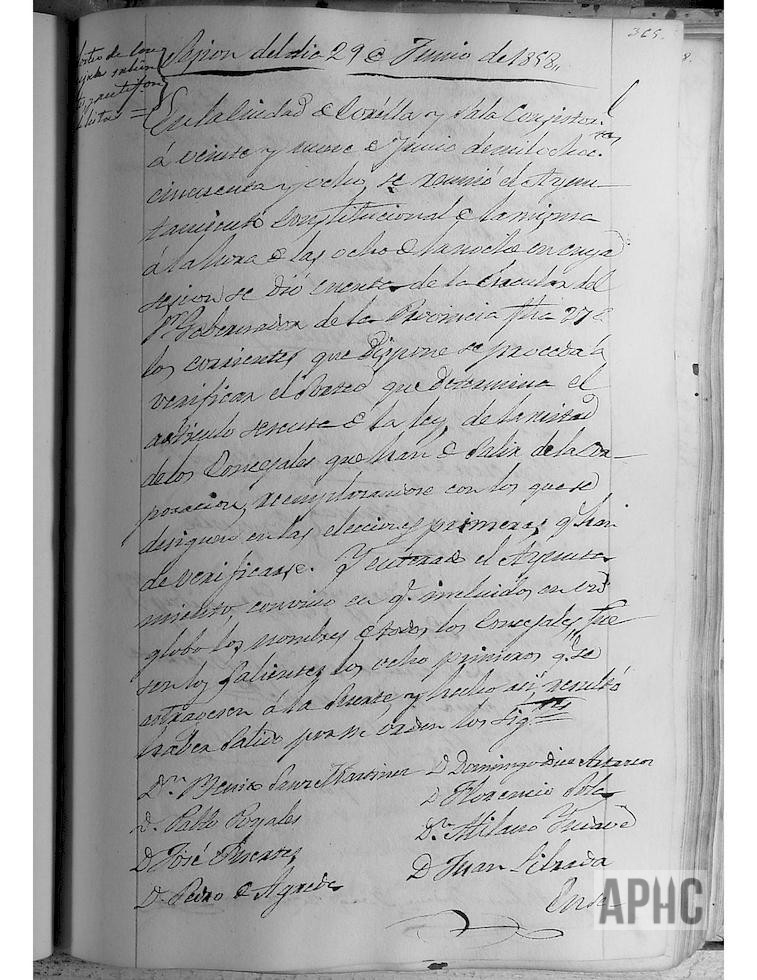 365.
Sorteo de Con
cejales salien
tes
Sesion del dia 29 de Junio de 1858,,
En la Ciudad de Corella y Sala Consistori.l
á veinte y nueve de Junio de mil ochoc.tos
cincuenta y ocho, se reunió el Ayun-
tamiento Constitucional de la misma
á la hora de las ocho de la noche en cuya
sesion se dió cuenta de la circular del
Sr. Gobernador de la Provincia fha 27 de
los corrientes que dispone se proceda á
verificar el sorteo que determina el
articulo sesenta de la ley, de la mitad
de los Concejales que han de salir de la Cor-
poracion, reemplazandose con los que se
designen en las elecciones primeras q. han
de verificarse. Y enterado el Ayunta-
miento, convino en q. incluidos en un
globo los nombres de todos los Concejales, fue
sen los salientes los ocho primeros q. se
estragesen á la suerte y hecho asi, resultó
haber salido por su orden los sig.tes
D.n Benito Sanz Martinez D. Domingo Diez
D. Florencio Sola
D. Pablo Royales
D.n Milano
D. José Puertas
D. Juan Librada
D. Pedro de Agreda
En se
APHC